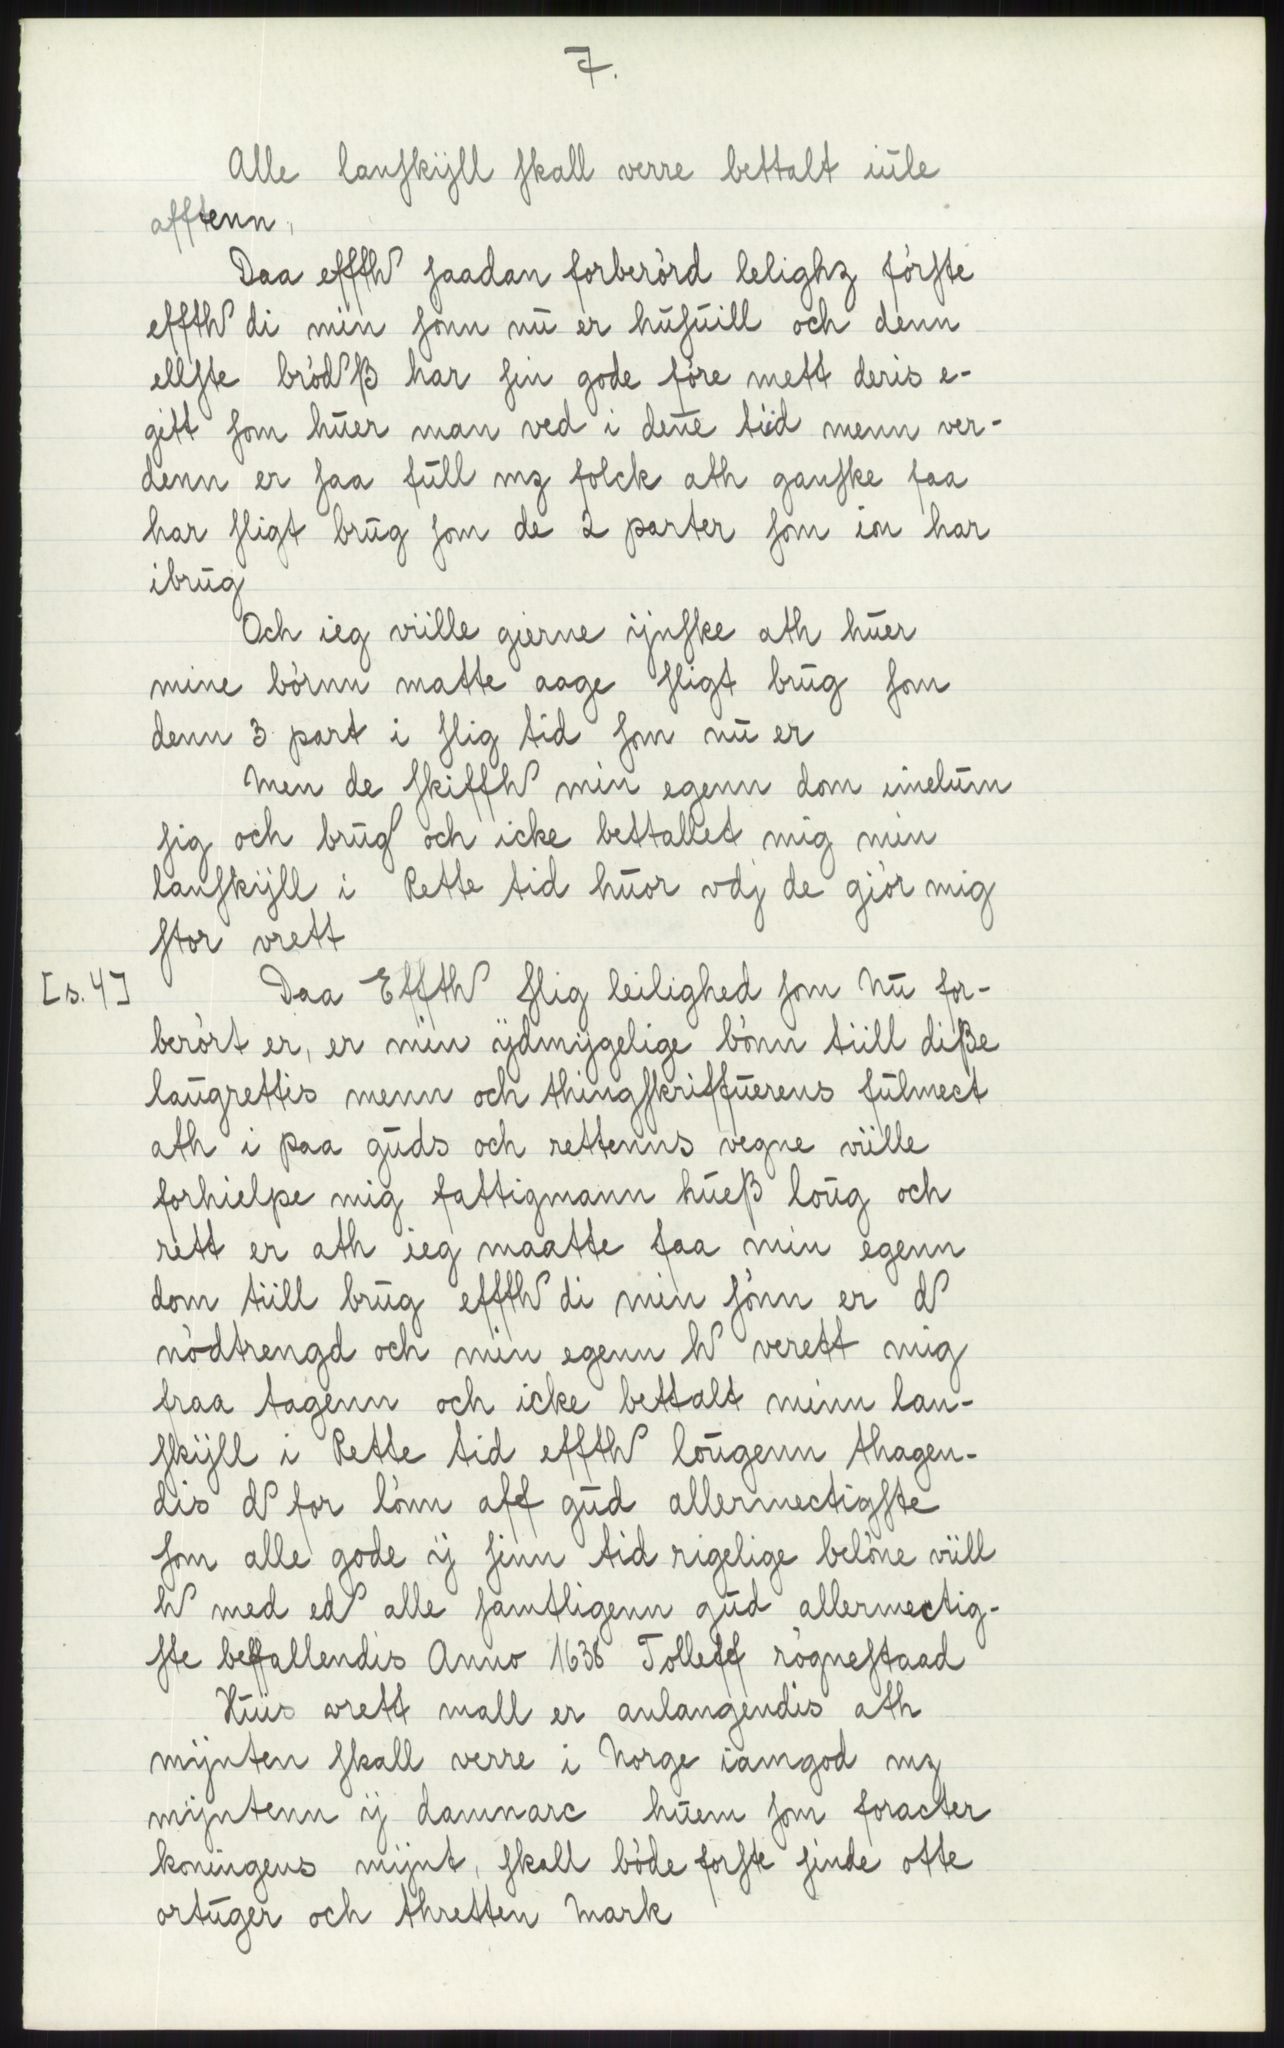 7.
Alle lanskÿll skall verre bettalt iūle
afftenn,
Daa effth saadan forberörd lelighz förste
effth di min sonn nū er hūsūill och denn
ellste brödß har sin gode före mett deris e-
gitt som hūer man ved i dene tiid menn ver-
denn er saa fūll mz folck ath ganske faa
har sligt brūg som de 2 parter som ion har
ibrūg
Och ieg viille gierne ÿnske ath hūer
mine börnn matte aage sligt brūg som
denn 3 part i slig tid som nū er
Men de skiffth min egenn dom imelūm
sig och brūg och icke bettallet mig min
lanskÿll i Rette tid hūor vdj de giör mig
stor vrett
[s. 4] Daa Effth slig leilighed som Nū for-
berört er, er min ÿdmÿgelige bönn tiill diße
laūgrettis menn och thingskriffūerens fūlmect
ath i paa gūds och rettenns vegne viille
forhielpe mig fattigmann hūeß loūg och
rett er ath ieg maatte faa min egenn
dom tiill brūg effth di min sönn er d
nödtrengd och min egenn h verett mig
fraa tagenn och icke bettalt minn lan-
skÿll i Rette tid effth loūgenn thagen-
dis d for lönn aff gūd allermectigste
som alle gode ÿ sinn tid rigelige belöne viill
h med ed alle samtligenn gūd allermectig-
ste beffallendis Anno 1638 Tolleff rögnestaad
Hūis vrett mall er anlangendis ath
mÿnten skall verre i Norge iamgod mz
mÿntenn ÿ dannarc hūem som foracter
koningens mÿnt, skall böde förste sinde otte
ortūger och thretten Mark